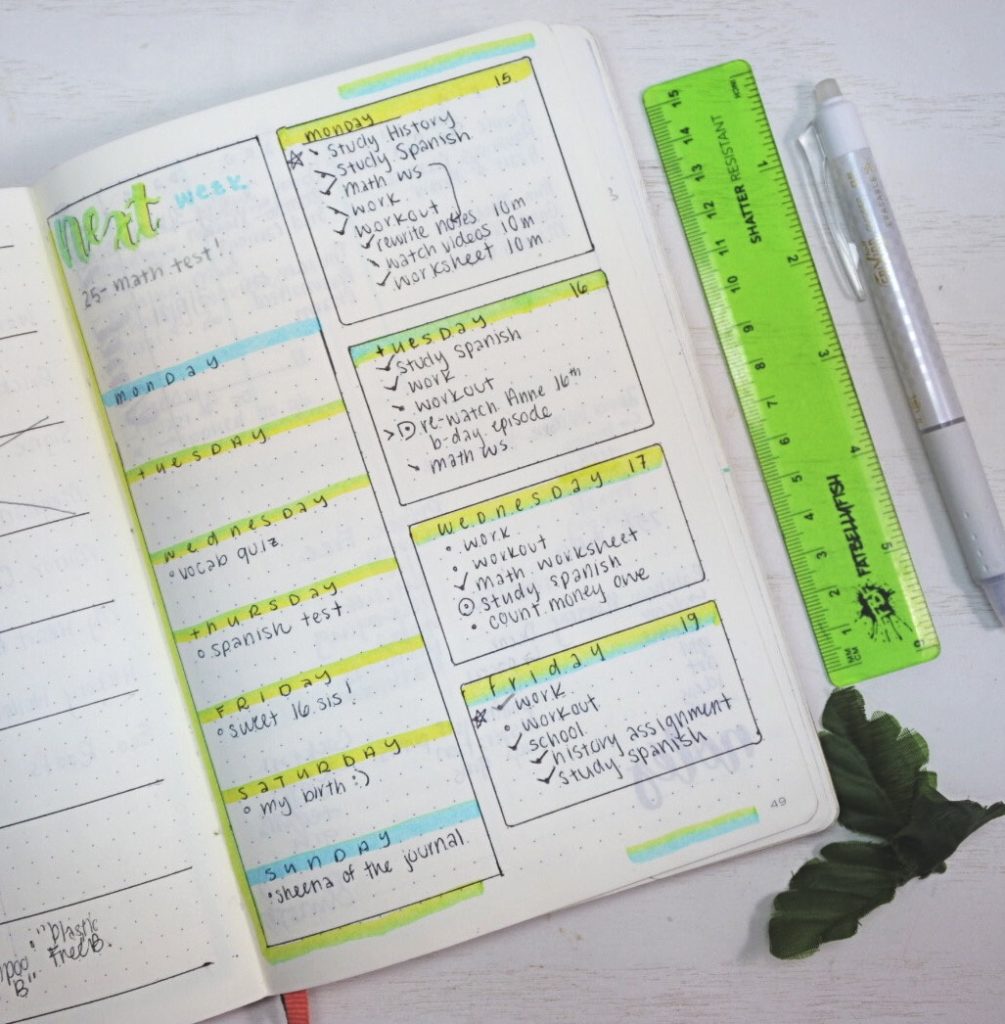 next week
25- math test!
monday
tuesday
wednesday
• vocab quiz
thursday
• spanish test
FRIDAY
• sweet 16 sis!
saturday
• my birth :)
sunday
• sheena of the journal
monday 15
study History
study Spanish
math ws
work
workout
rewrite notes 10m
watch videos 10m
worksheet 10m
tuesday 16
study Spanish
work
workout
re-watch Anne 16th
b-day episode
math ws.
wednesday 17
• work
• workout
math worksheet
study spanish
• count money owe
friday 19
work
• workout
school
history assignment
study spanish
49
"Plastic
Free B.
B"
SHATTER RESISTANT
FATBELLYFISH
15 14 13 12 11 10 9 8 7 6 5 4 3 2 1
1 2 3 4 5 6